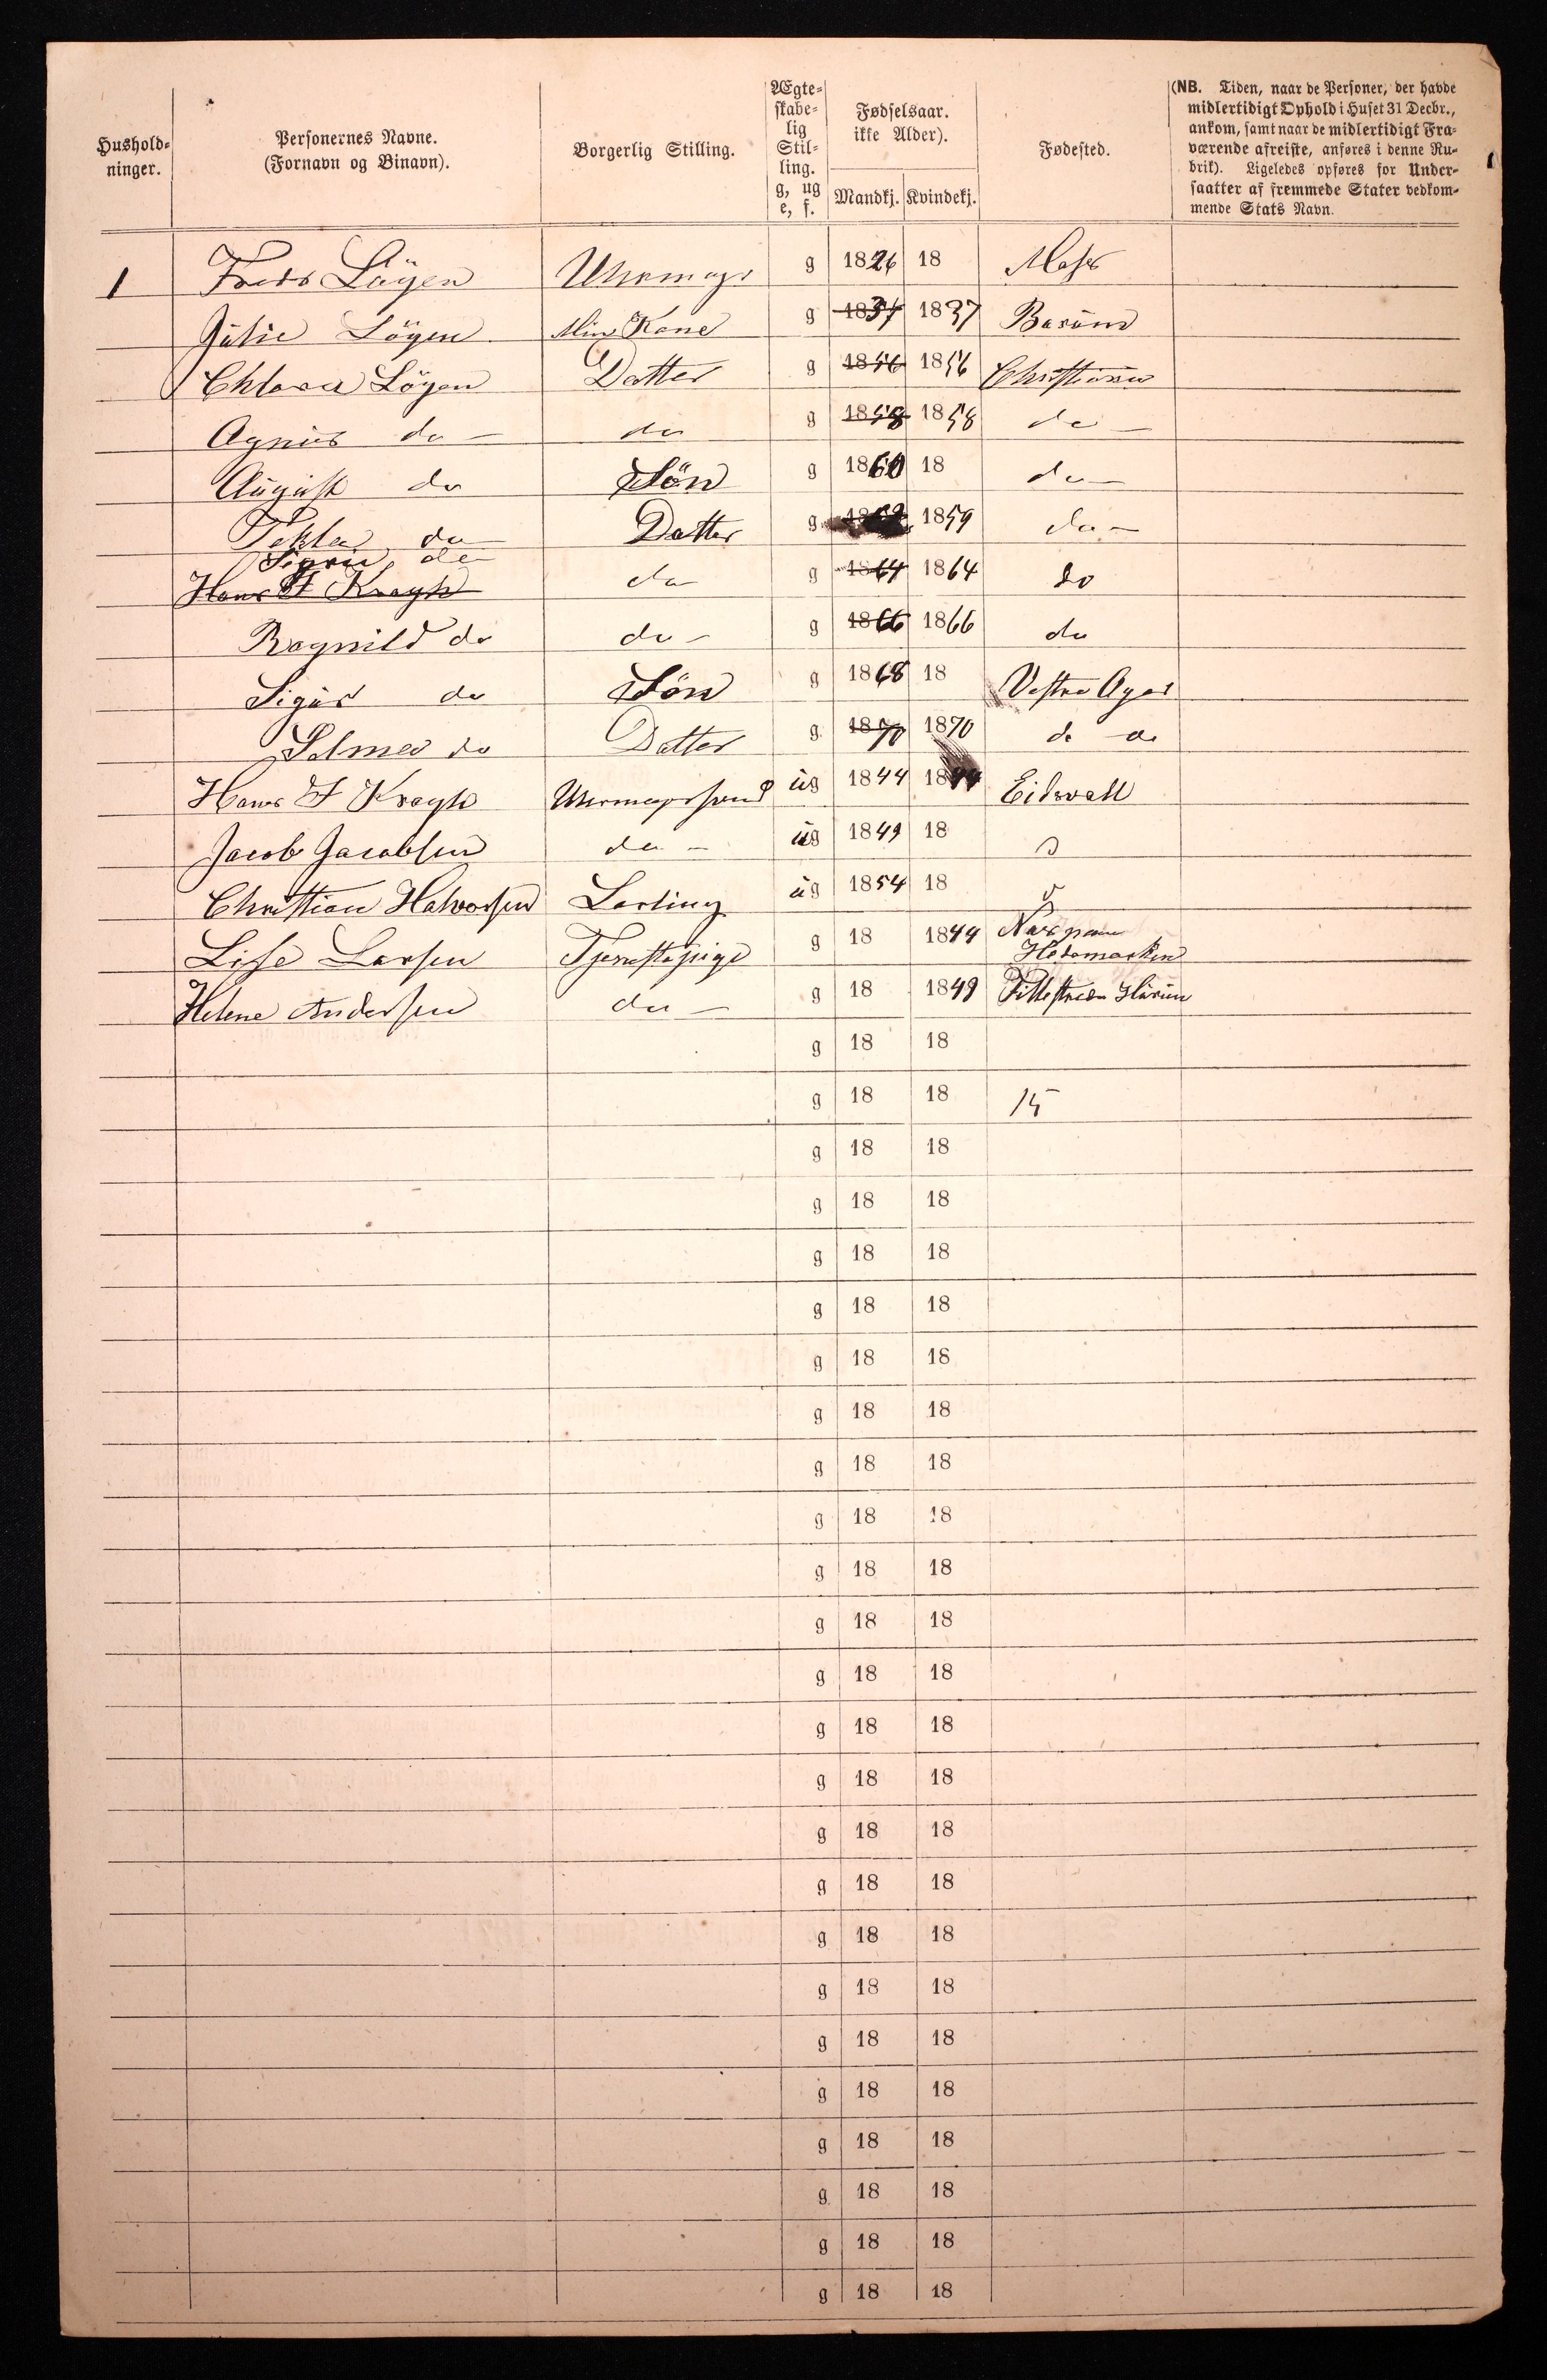 Hushold-
ninger.
Personernes Navne.
(Fornavn og Binavn).
Borgerlig Stilling.
Ægte-
skabe-
lig
Stil-
ling.
g, ug
e, f.
Fødselsaar.
ikke Alder).
Mandkj. Kvindekj.
Fødested.
(NB. Tiden, naar de Personer, der havde
midlertidigt Ophold i Huset 31 Decbr.,
ankom, samt naar de midlertidigt Fra-
værende afreiste, anføres i denne Ru-
brik). Ligeledes opføres for Under-
saatter af fremmede Stater vedkom-
mende Stats Navn.
1 g 1826 18 Moss
Julie Lögen Min Kone g 1837 1837 Barüm
Lögen Datter g 1856 1856 Christiania
Agnes do do g 1858 1858 do
Aügüst do Sön g 1860 18 do
Tekla do Datter g 1859 do
Sigrid do
Hans F Kragh do g 1864 1864 do
Ragnild do do g 1866 1866 do
Sigür do Sön g 1868 18 Vestre Ager
Selma do Datter g 1870 1870 do do
Hans F Kragh Uhrmagersvend üg 1844 1844 Eidsvold
Jacob Jacobsen do üg 1849 18
Christian Halvorsen Lærling üg 1854 18
Lise Larsen Tjenestepige g 18 1844
Hedemarken
Helene Andersen do g 18 1849
g 18 18
g 18 18 15
g 18 18
g 18 18
g 18 18
g 18 18
g 18 18
g 18 18
g 18 18
g 18 18
g 18 18
g 18 18
g 18 18
g 18 18
g 18 18
g 18 18
g 18 18
g 18 18
g 18 18
g 18 18
g 18 18
g 18 18
g 18 18
g 18 18
g 18 18